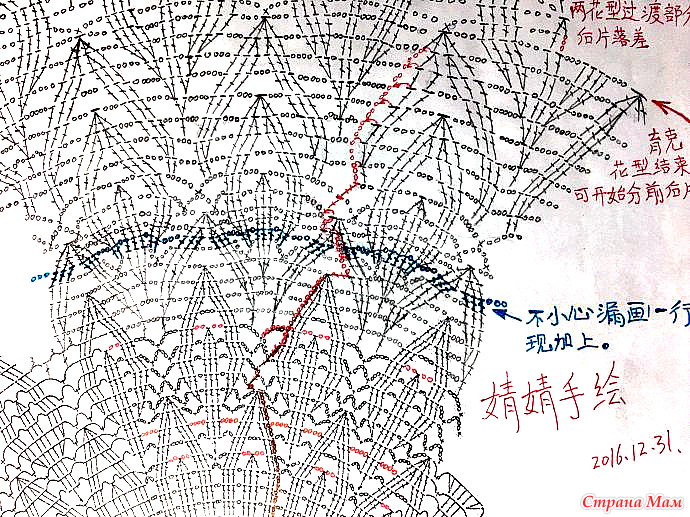 两花型过渡部分
后片落差
育克
花型结束
可开始分前后片
不小心漏画一行
现加上。
婧婧手绘
2016.12.31.
Страна Мам